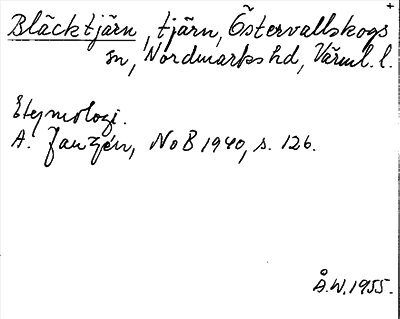 Bläcktjärn, tjärn, Östervallskogs
sn, Nordmarks hd, Värml. l.
Etymologi.
A. Janzén, NoB 1940, s. 126.
Å.W. 1955.